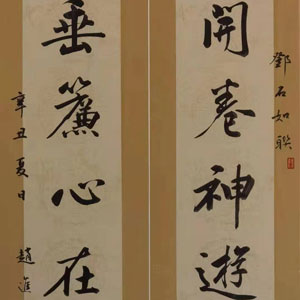 鄧石如聯
開卷神遊
垂簾心在
辛丑夏日 趙進